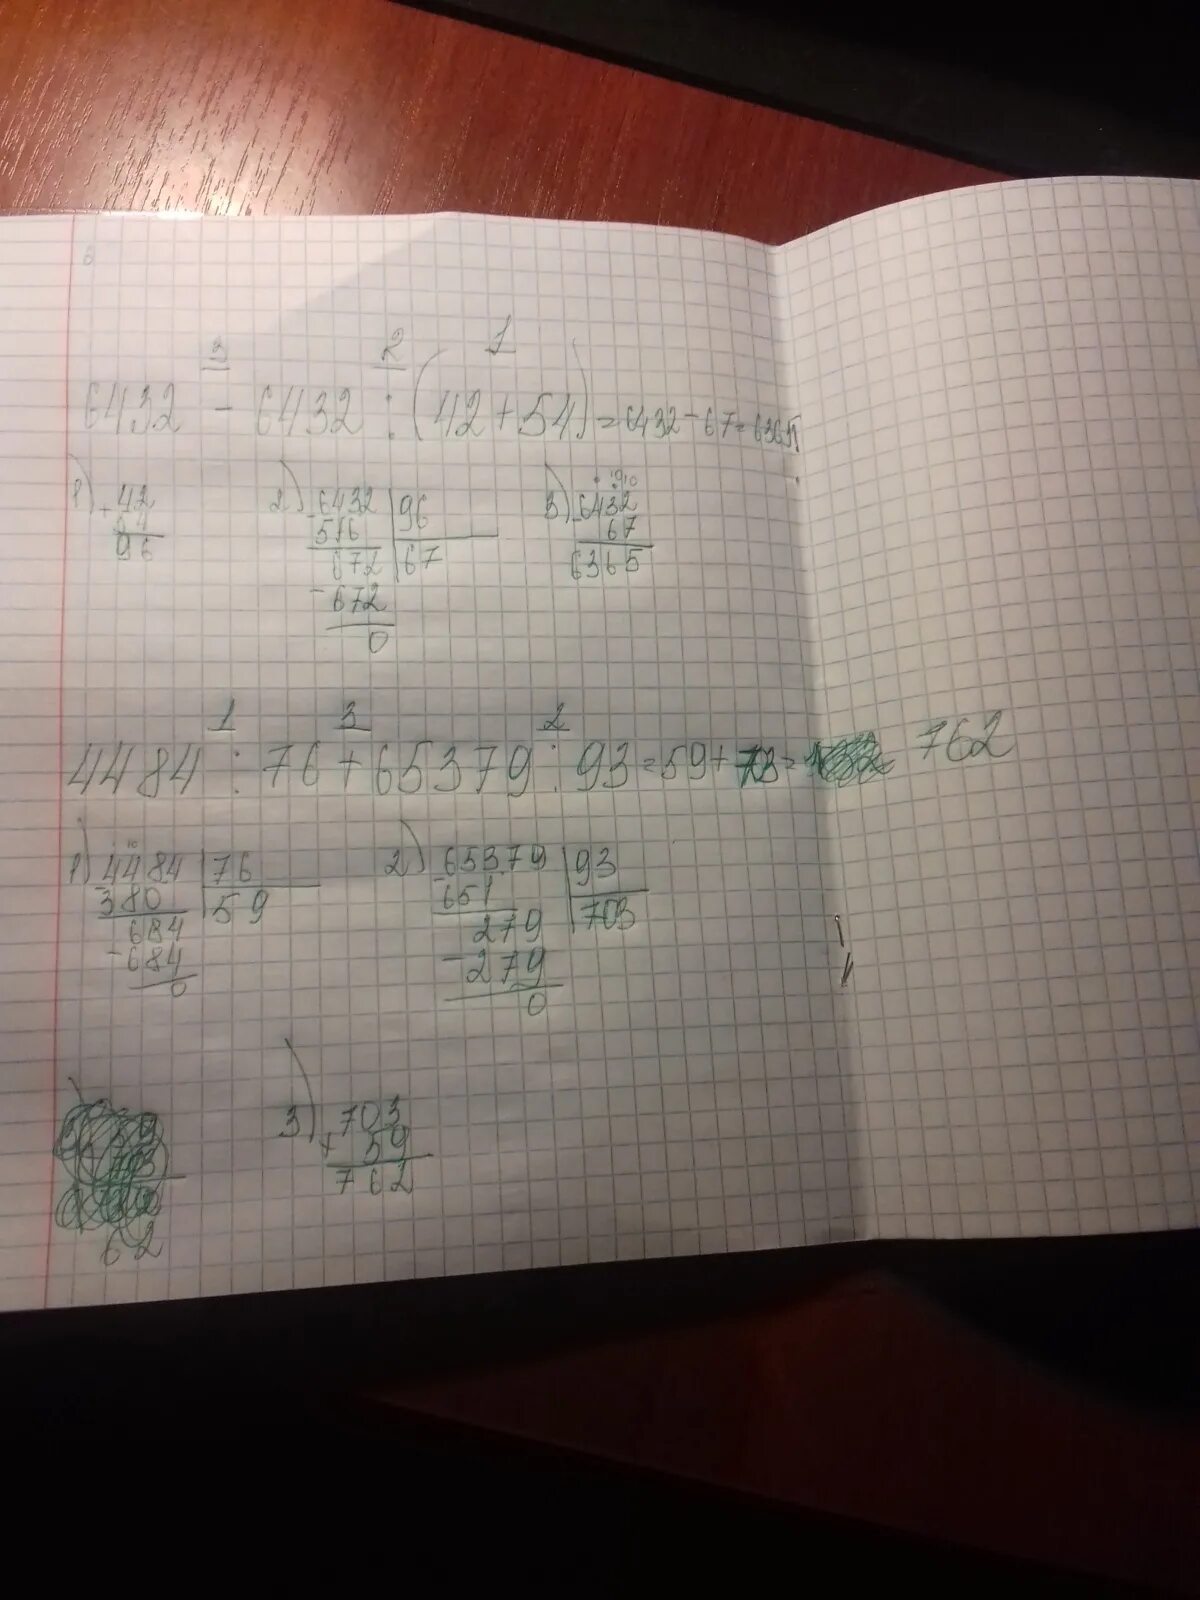 3 2 1
6432 - 6432 : (42 + 54) = 6432 - 67 = 6365
1) 2) 3)
+ 42
54
96
- 6432 | 96
516 | 67
672
- 672
0
- 6432
67
6365
1 3 2
4484 : 76 + 65379 : 93 = 59 + 703 = 762
1) - 4484 | 76
380 | 59
684
- 684
0
2) - 65379 | 93
651 | 703
279
- 279
0
62
3) + 703
59
762